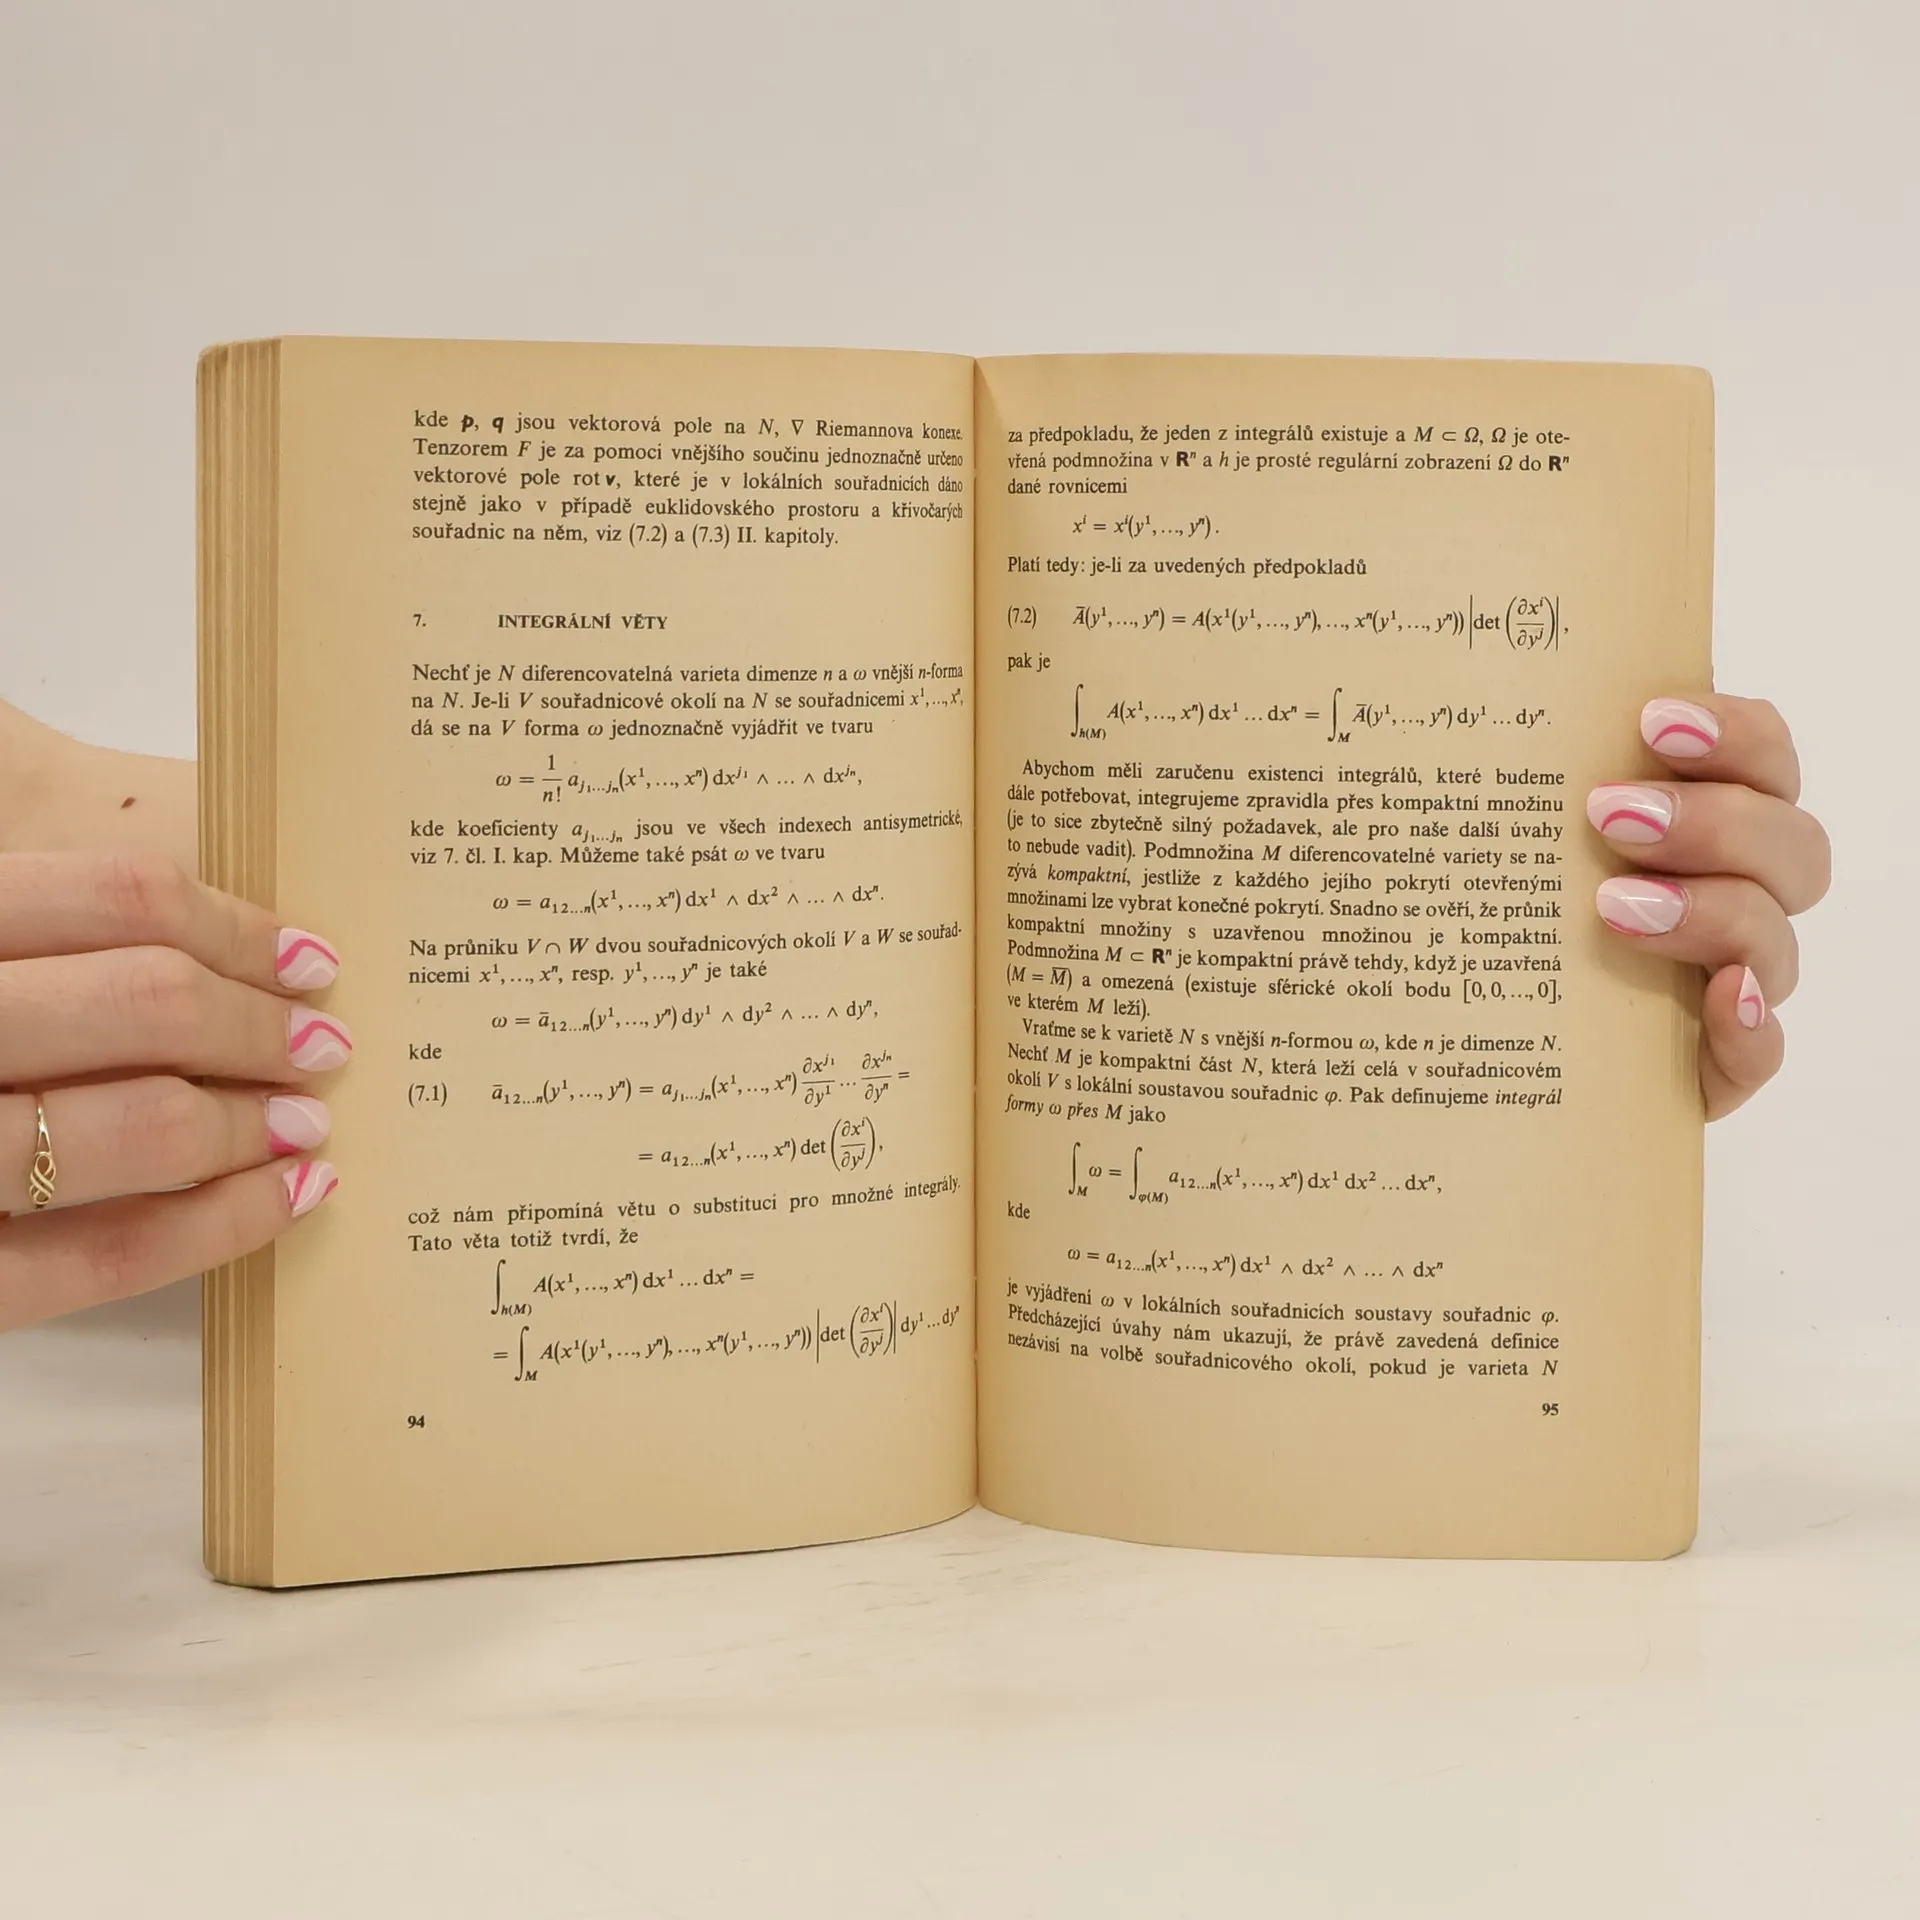 kde p, q jsou vektorová pole na N, ∇ Riemannova konexe.
Tenzorem F je za pomoci vnějšího součinu jednoznačně určeno
vektorové pole rot v, které je v lokálních souřadnicích dáno
stejně jako v případě euklidovského prostoru a křivočarých
souřadnic na něm, viz (7.2) a (7.3) II. kapitoly.
7. INTEGRÁLNÍ VĚTY
Nechť je N diferencovatelná varieta dimenze n a ω vnější n-forma
na N. Je-li V souřadnicové okolí na N se souřadnicemi x¹, ..., xⁿ,
dá se na V forma ω jednoznačně vyjádřit ve tvaru
ω = 1/n! a_{j₁...jₙ}(x¹, ..., xⁿ) dx^{j₁} ∧ ... ∧ dx^{jₙ},
kde koeficienty a_{j₁...jₙ} jsou ve všech indexech antisymetrické,
viz 7. čl. I. kap. Můžeme také psát ω ve tvaru
ω = a₁₂...ₙ(x¹, ..., xⁿ) dx¹ ∧ dx² ∧ ... ∧ dxⁿ.
Na průniku V ∩ W dvou souřadnicových okolí V a W se souřad-
nicemi x¹, ..., xⁿ, resp. y¹, ..., yⁿ je také
ω = ā₁₂...ₙ(y¹, ..., yⁿ) dy¹ ∧ dy² ∧ ... ∧ dyⁿ,
kde
(7.1) ā₁₂...ₙ(y¹, ..., yⁿ) = a_{j₁...jₙ}(x¹, ..., xⁿ) ∂x^{j₁}/∂y¹ ... ∂x^{jₙ}/∂yⁿ =
= a₁₂...ₙ(x¹, ..., xⁿ) det (∂xⁱ/∂yʲ),
což nám připomíná větu o substituci pro množné integrály.
Tato věta totiž tvrdí, že
∫_{h(M)} A(x¹, ..., xⁿ) dx¹ ... dxⁿ =
= ∫_M A(x¹(y¹, ..., yⁿ), ..., xⁿ(y¹, ..., yⁿ)) |det (∂xⁱ/∂yʲ)| dy¹ ... dyⁿ
94
za předpokladu, že jeden z integrálů existuje a M ⊂ Ω, Ω je ote-
vřená podmnožina v Rⁿ a h je prosté regulární zobrazení Ω do Rⁿ
dané rovnicemi
xⁱ = xⁱ(y¹, ..., yⁿ).
Platí tedy: je-li za uvedených předpokladů
(7.2) Ā(y¹, ..., yⁿ) = A(x¹(y¹, ..., yⁿ), ..., xⁿ(y¹, ..., yⁿ)) |det (∂xⁱ/∂yʲ)|,
pak je
∫_{h(M)} A(x¹, ..., xⁿ) dx¹ ... dxⁿ = ∫_M Ā(y¹, ..., yⁿ) dy¹ ... dyⁿ.
Abychom měli zaručenu existenci integrálů, které budeme
dále potřebovat, integrujeme zpravidla přes kompaktní množinu
(je to sice zbytečně silný požadavek, ale pro naše další úvahy
to nebude vadit). Podmnožina M diferencovatelné variety se na-
zývá kompaktní, jestliže z každého jejího pokrytí otevřenými
množinami lze vybrat konečné pokrytí. Snadno se ověří, že průnik
kompaktní množiny s uzavřenou množinou je kompaktní.
Podmnožina M ⊂ Rⁿ je kompaktní právě tehdy, když je uzavřená
(M = M̄) a omezená (existuje sférické okolí bodu [0, 0, ..., 0],
ve kterém M leží).
Vraťme se k varietě N s vnější n-formou ω, kde n je dimenze N.
Nechť M je kompaktní část N, která leží celá v souřadnicovém
okolí V s lokální soustavou souřadnic φ. Pak definujeme integrál
formy ω přes M jako
∫_M ω = ∫_{φ(M)} a₁₂...ₙ(x¹, ..., xⁿ) dx¹ dx² ... dxⁿ,
kde
ω = a₁₂...ₙ(x¹, ..., xⁿ) dx¹ ∧ dx² ∧ ... ∧ dxⁿ
je vyjádření ω v lokálních souřadnicích soustavy souřadnic φ.
Předcházející úvahy nám ukazují, že právě zavedená definice
nezávisí na volbě souřadnicového okolí, pokud je varieta N
95